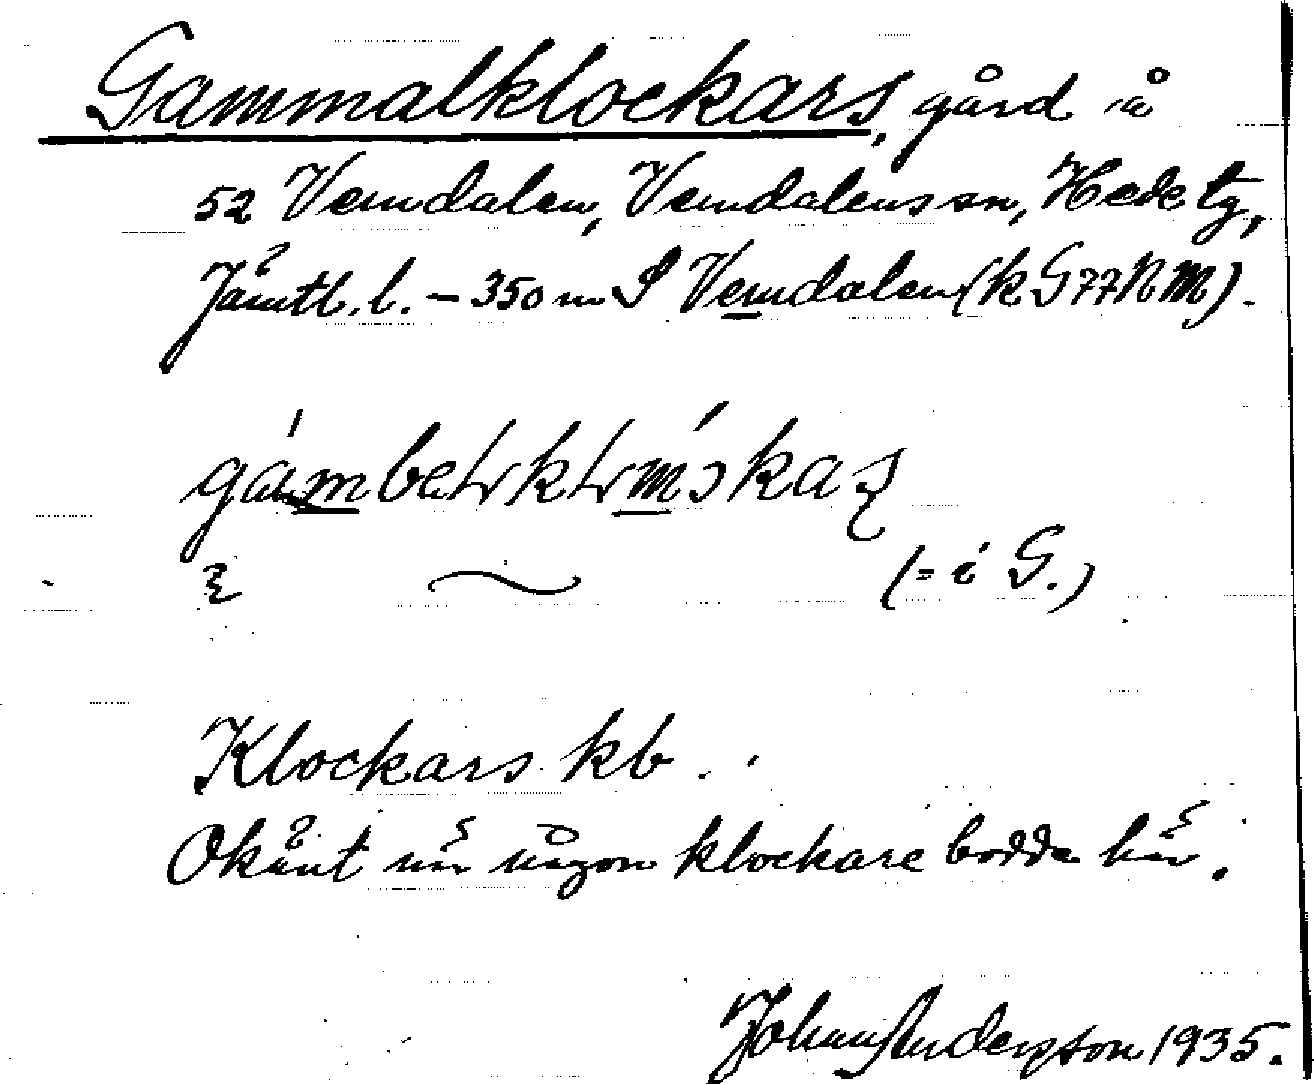 Gammalklockars, gård å
52 Vemdalen, Vemdalens sn, Hede tg,
Jämtl. l. – 350 m S Vemdalen (k G 77 N M).
(= i G.)
Klockars kb.
Okänt när någon klockare bodde här.
Johan Anderzson 1935.